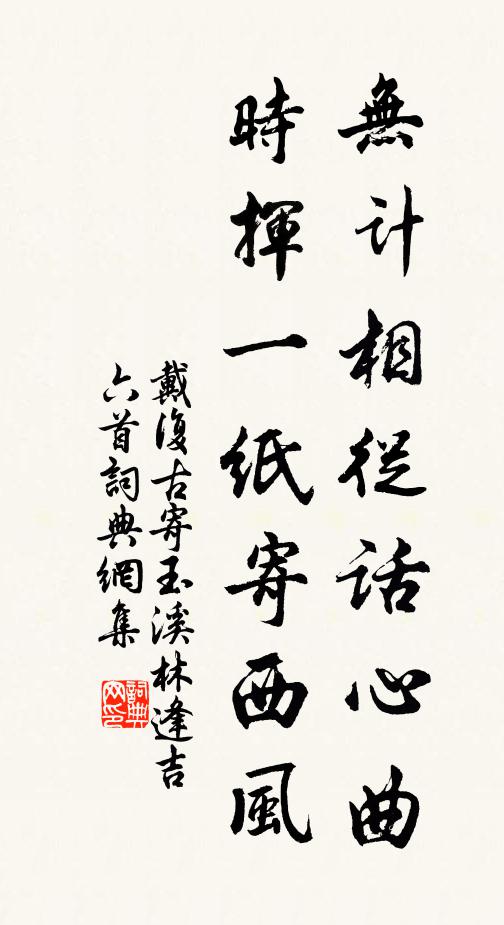 無計相從話心曲
時揮一紙寄西風
戴復古寄玉溪林逢吉
六首詞典網集
詞典
网印